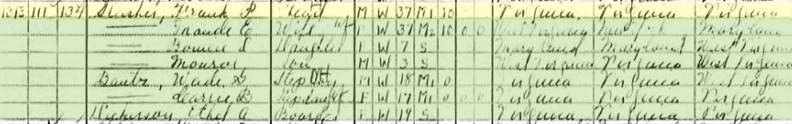 1013 111 134 Slusher, Frank P Head M W 37 M1 10 Virginia Virginia Virginia
Maude E Wife F W 37 M2 10 0 0 West Virginia Maryland
Bonnie Daughter F W 7 S Maryland Maryland West Virginia
Monroe Son M W 3 S West Virginia Virginia West Virginia
Wade M W 18 M1 0 Virginia Virginia West Virginia
Carrie B F W 17 M1 0 0 0 Virginia Virginia Virginia
Ethel A Boarder F W 19 S Virginia Virginia Virginia